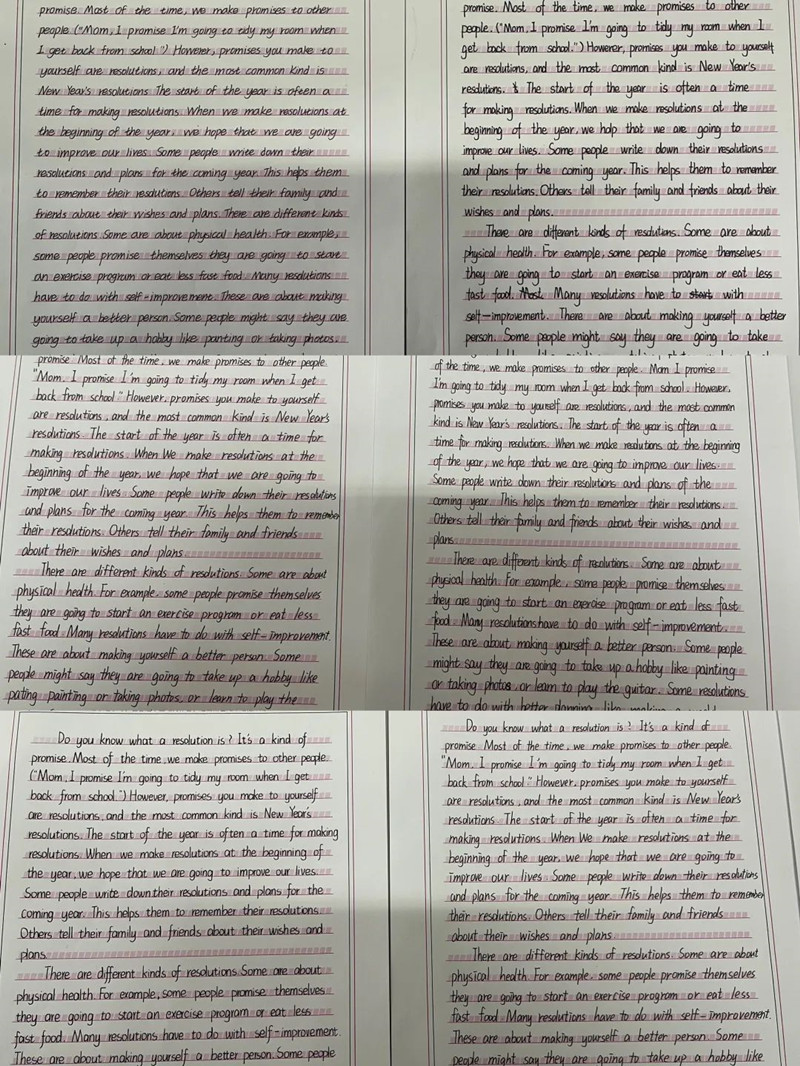 promise. Most of the time, we make promises to other
people ("Mom, I promise I'm going to tidy my room when
I get back from school.") However, promises you make to
yourself are resolutions, and the most common kind is
New Year's resolutions The start of the year is often a
time for making resolutions. When we make resolutions at
the beginning of the year, we hope that we are going
to improve our lives. Some people write down their
resolutions and plans for the coming year. This helps them
to remember their resolutions. Others tell their family and
friends about their wishes and plans. There are different kinds
of resolutions Some are about physical health. For example,
some people promise themselves they are going to start
an exercise program or eat less fast food. Many resolutions
have to do with self-improvement. These are about making
yourself a better person. Some people might say they are
going to take up a hobby like painting or taking photos.
promise. Most of the time, we make promises to other
people. ("Mom, I promise I'm going to tidy my room when I
get back from school.") However, promises you make to yourself
are resolutions, and the most common kind is New Year's
resolutions. The start of the year is often a time
for making resolutions. When we make resolutions at the
beginning of the year, we help that we are going to
improve our lives. Some people write down their resolutions
and plans for the coming year. This helps them to remember
their resolutions. Others tell their family and friends about their
wishes and plans.
There are different kinds of resolutions. Some are about
physical health. For example, some people promise themselves
they are going to start an exercise program or eat less
fast food. Many resolutions have to with
self-improvement. There are about making yourself a better
person. Some people might say they are going to take
promise Most of the time, we make promises to other people.
"Mom, I promise I'm going to tidy my room when I get
back from school" However, promises you make to yourself
are resolutions, and the most common kind is New Year's
resolutions The start of the year is often a time for
making resolutions. When We make resolutions at the
beginning of the year, we hope that we are going to
improve our lives Some people write down their resolutions
and plans for the coming year This helps them to remember
their resolutions. Others tell their family and friends
about their wishes and plans
There are different kinds of resolutions. Some are about
physical health. For example, some people promise themselves
they are going to start an exercise program or eat less
fast food Many resolutions have to do with self-improvement.
These are about making yourself a better person. Some
people might say they are going to take up a hobby like
pating painting or taking photos, or learn to play the
of the time, we make promises to other people. Mom I promise
I'm going to tidy my room when I get back from school. However,
promises you make to yourself are resolutions, and the most common
kind is New Year's resolutions. The start of the year is often a
time for making resolutions. When we make resolutions at the beginning
of the year, we hope that we are going to improve our lives.
Some people write down their resolutions and plans of the
coming year. This helps them to remember their resolutions.
Others tell their family and friends about their wishes and
plans.
There are different kinds of resolutions. Some are about
physical health. For example, some people promise themselves
they are going to start an exercise program or eat less fast
food. Many resolutions have to do with self-improvement.
These are about making yourself a better person. Some people
might say they are going to take up a hobby like painting
or taking photos or learn to play the guitar. Some resolutions
have to do with better planning, like making a
Do you know what a resolution is? It's a kind of
promise Most of the time, we make promises to other people.
("Mom, I promise I'm going to tidy my room when I get
back from school.") However, promises you make to yourself
are resolutions, and the most common kind is New Year's
resolutions. The start of the year is often a time for making
resolutions. When we make resolutions at the beginning of
the year, we hope that we are going to improve our lives.
Some people write down their resolutions and plans for the
coming year. This helps them to remember their resolutions.
Others tell their family and friends about their wishes and
plans
There are different kinds of resolutions Some are about
physical health. For example, some people promise themselves
they are going to start an exercise program or eat less
fast food. Many resolutions have to do with self-improvement.
These are about making yourself a better person. Some people
Do you know what a resolution is? It's a kind of
promise Most of the time, we make promises to other people.
"Mom, I promise I'm going to tidy my room when I get
back from school" However, promises you make to yourself
are resolutions, and the most common kind is New Year's
resolutions The start of the year is often a time for
making resolutions. When We make resolutions at the
beginning of the year, we hope that we are going to
improve our lives Some people write down their resolutions
and plans for the coming year This helps them to remember
their resolutions. Others tell their family and friends
about their wishes and plans
There are different kinds of resolutions. Some are about
physical health. For example, some people promise themselves
they are going to start an exercise program or eat less
fast food Many resolutions have to do with self-improvement.
These are about making yourself a better person. Some
people might say they are going to take up a hobby like